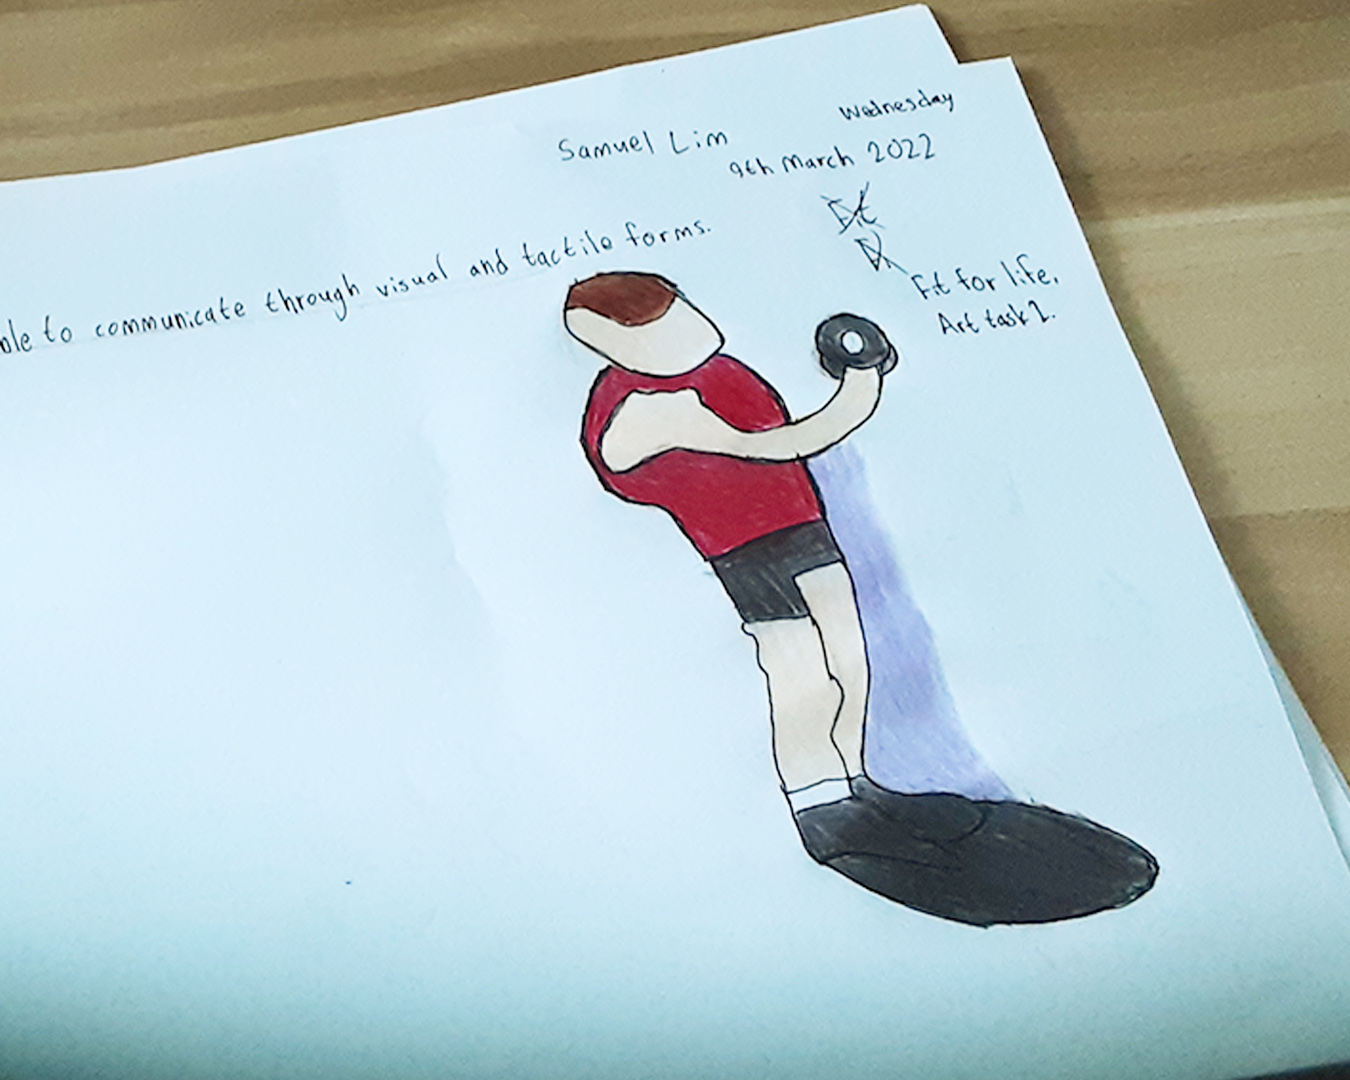 Wednesday
Samuel Lim
9th March 2022
to communicate through visual and tactile forms.
Fit for life.
Art task 2.